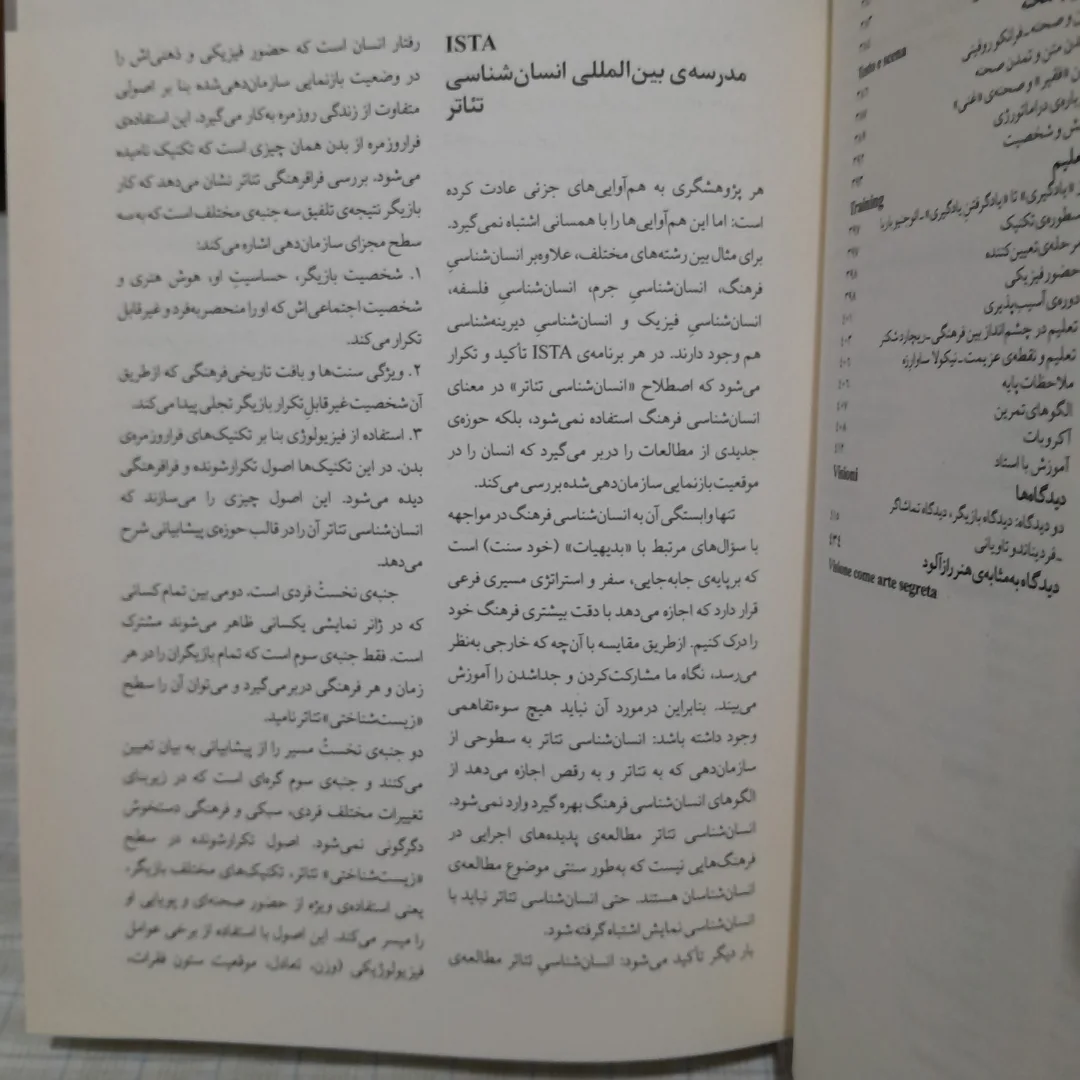 ISTA
مدرسه‌ی بین‌المللی انسان‌شناسی
تئاتر
هر پژوهشگری به هم‌آوایی‌های جزئی عادت کرده
است: اما این هم‌آوایی‌ها را با همسانی اشتباه نمی‌گیرد.
برای مثال بین رشته‌های مختلف، علاوه‌بر انسان‌شناسیِ
فرهنگ، انسان‌شناسیِ جرم، انسان‌شناسیِ فلسفه،
انسان‌شناسیِ فیزیک و انسان‌شناسیِ دیرینه‌شناسی
هم وجود دارند. در هر برنامه‌ی ISTA تأکید و تکرار
می‌شود که اصطلاح «انسان‌شناسی تئاتر» در معنای
انسان‌شناسی فرهنگ استفاده نمی‌شود، بلکه حوزه‌ی
جدیدی از مطالعات را دربر می‌گیرد که انسان را در
موقعیت بازنمایی سازمان‌دهی‌شده بررسی می‌کند.
تنها وابستگی آن به انسان‌شناسی فرهنگ در مواجهه
با سؤال‌های مرتبط با «بدیهیات» (خود سنت) است
که برپایه‌ی جابه‌جایی، سفر و استراتژی مسیری فرعی
قرار دارد که اجازه می‌دهد با دقت بیشتری فرهنگ خود
را درک کنیم. ازطریق مقایسه با آن‌چه که خارجی به‌نظر
می‌رسد، نگاه ما مشارکت‌کردن و جداشدن را آموزش
می‌بیند. بنابراین درمورد آن نباید هیچ سوءتفاهمی
وجود داشته باشد: انسان‌شناسی تئاتر به سطوحی از
سازمان‌دهی که به تئاتر و به رقص اجازه می‌دهد از
الگوهای انسان‌شناسی فرهنگ بهره گیرد وارد نمی‌شود.
انسان‌شناسی تئاتر مطالعه‌ی پدیده‌های اجرایی در
فرهنگ‌هایی نیست که به‌طور سنتی موضوع مطالعه‌ی
انسان‌شناسان هستند. حتی انسان‌شناسی تئاتر نباید با
انسان‌شناسی نمایش اشتباه گرفته شود.
بار دیگر تأکید می‌شود: انسان‌شناسیِ تئاتر مطالعه‌ی
رفتار انسان است که حضور فیزیکی و ذهنی‌اش را
در وضعیت بازنمایی سازمان‌دهی‌شده بنا بر اصولی
متفاوت از زندگی روزمره به‌کار می‌گیرد. این استفاده‌ی
فراروزمره از بدن همان چیزی است که تکنیک نامیده
می‌شود. بررسی فرافرهنگی تئاتر نشان می‌دهد که کار
بازیگر نتیجه‌ی تلفیق سه جنبه‌ی مختلف است که به سه
سطح مجزای سازمان‌دهی اشاره می‌کند:
۱. شخصیت بازیگر، حساسیتِ او، هوش هنری و
شخصیت اجتماعی‌اش که او را منحصربه‌فرد و غیرقابل
تکرار می‌کند.
۲. ویژگی سنت‌ها و بافت تاریخی‌فرهنگی که ازطریق
آن شخصیت غیرقابلِ‌تکرار بازیگر تجلی پیدا می‌کند.
۳. استفاده از فیزیولوژی بنا بر تکنیک‌های فراروزمره‌ی
بدن. در این تکنیک‌ها اصول تکرارشونده و فرافرهنگی
دیده می‌شود. این اصول چیزی را می‌سازند که
انسان‌شناسی تئاتر آن را در قالب حوزه‌ی پیشابیانی شرح
می‌دهد.
جنبه‌ی نخستْ فردی است. دومی بین تمام کسانی
که در ژانر نمایشی یکسانی ظاهر می‌شوند مشترک
است. فقط جنبه‌ی سوم است که تمام بازیگران را در هر
زمان و هر فرهنگی دربر می‌گیرد و می‌توان آن را سطح
«زیست‌شناختی» تئاتر نامید.
دو جنبه‌ی نخستْ مسیر را از پیشابیانی به بیان تعیین
می‌کنند و جنبه‌ی سوم گره‌ای است که در زیربنای
تغییرات مختلف فردی، سبکی و فرهنگی دستخوش
دگرگونی نمی‌شود. اصول تکرارشونده در سطح
«زیست‌شناختی» تئاتر، تکنیک‌های مختلف بازیگر،
یعنی استفاده‌ی ویژه از حضور صحنه‌ای و پویایی او
را میسر می‌کند. این اصول با استفاده از برخی عوامل
فیزیولوژیکی (وزن، تعادل، موقعیت ستون فقرات،
و صحنه ـ فرانکو روفینی
Testo e scena
متن و تمدن صحنه
«فقیر» و صحنه‌ی «غنی»
درباره‌ی دراماتورژی
و شخصیت
Training
«یادگیری» تا «یادگرفتنِ یادگیری» ـ ائوجنیو باربا
اسطوره‌ی تکنیک
مرحله‌ی تعیین‌کننده
حضور فیزیکی
دوره‌ی آسیب‌پذیری
تعلیم در چشم‌انداز بین فرهنگی ـ ریچارد شکنر
تعلیم و نقطه‌ی عزیمت ـ نیکولا ساوارزه
ملاحظات پایه
الگوهای تمرین
آکروبات
آموزش با استاد
دیدگاه‌ها
Visioni
دو دیدگاه: دیدگاه بازیگر، دیدگاه تماشاگر
ـ فردیناندو تاویانی
دیدگاه به‌مثابه‌ی هنر رازآلود
Visione come arte segreta